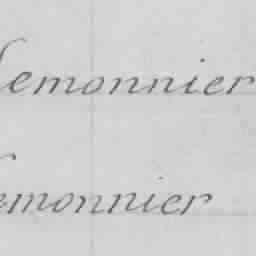 Lemonnier
Lemonnier